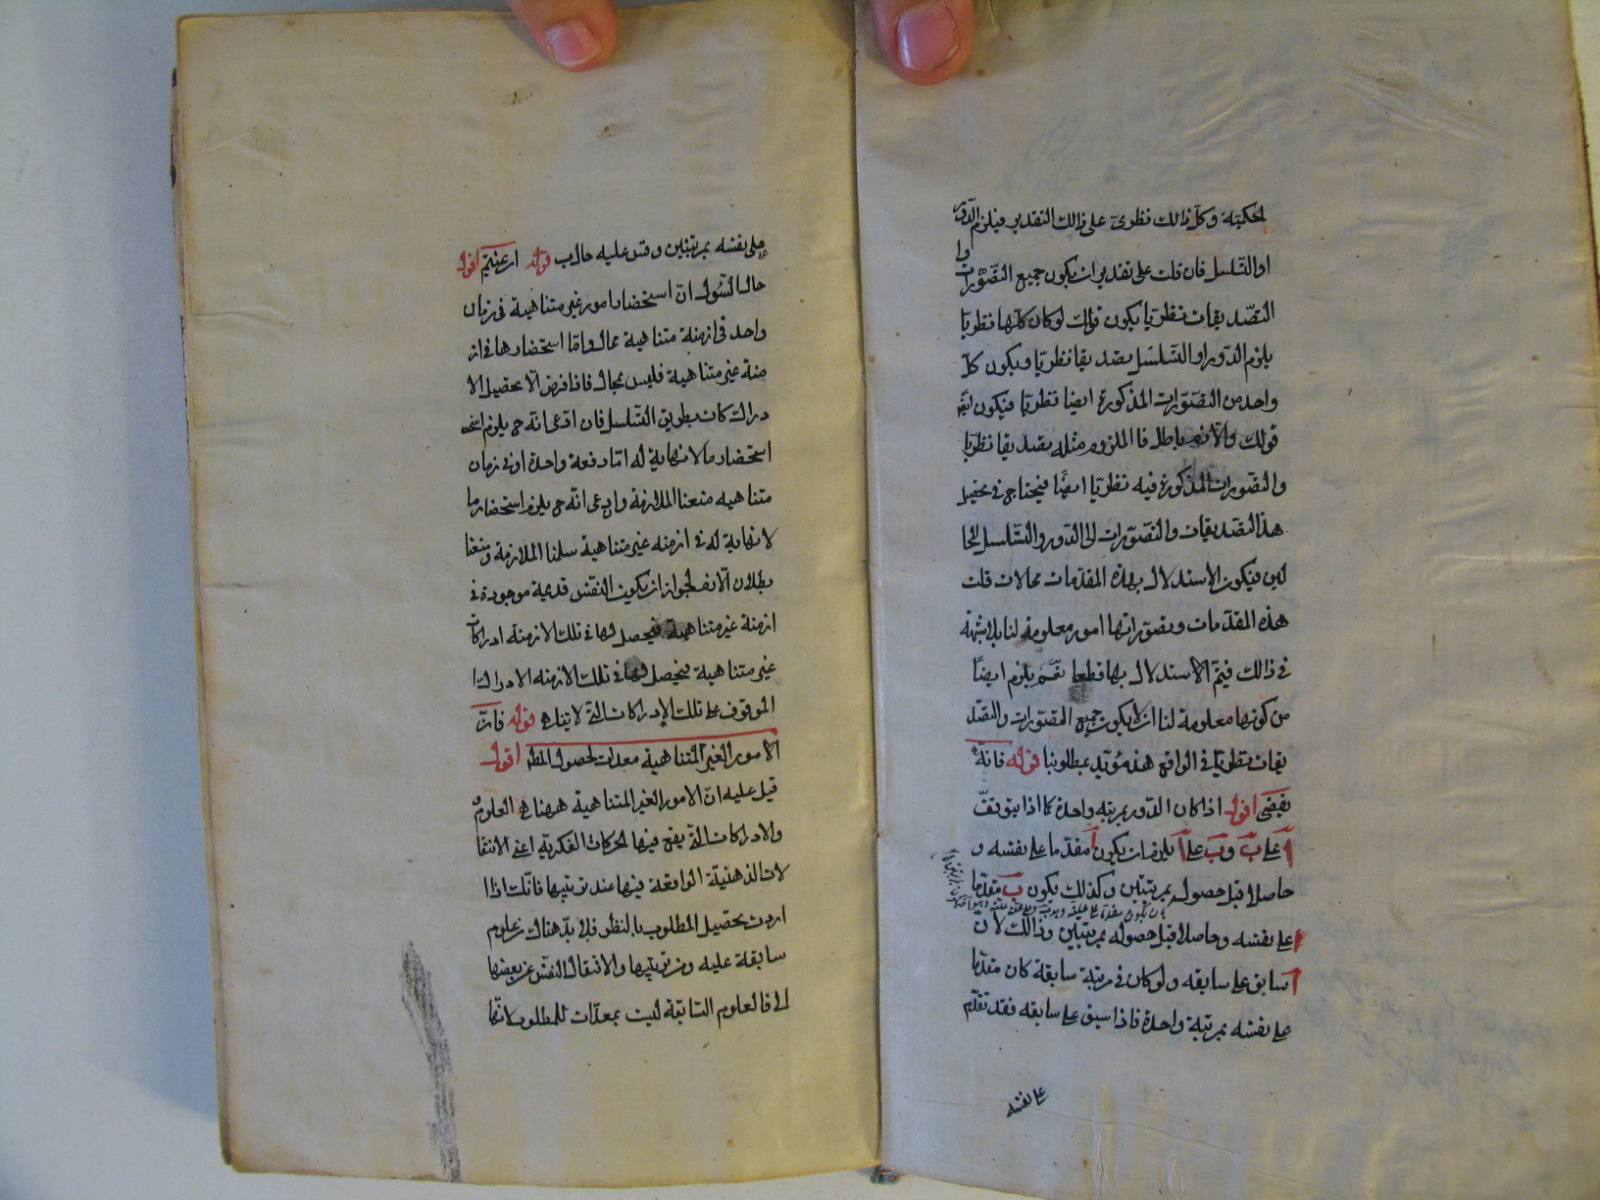 الحكمية وكل ذالك نظرى على ذالك التقدير فيلزم الدور
او التسلسل فان قلت على تقدير ان يكون جميع التصورات وا
التصديقات نظريا يكون قولك لو كان كلها نظريا
يلزم الدور او التسلسل تصديقا نظريا ويكون كل
واحد من التصورات المذكورة ايضا نظريا فيكون
قولك واللازم باطل فا الملزوم مثله تصديقا نظريا
والتصورات المذكورة فيه نظريا ايضا فيحتاج في تحصيل
هذا التصديقات والتصورات الى الدور والتسلسل المحا
لين فيكون الاستدلال بهذه المقدمات محالات قلت
هذه المقدمات وتصوراتها امور معلومة لنا بلا شبهة
في ذالك فيتم الاستدلال بها قطعا نعم يلزم ايضا
من كونها معلومة لنا ان لا يكون جميع التصورات والتصد
يقات نظريا في الواقع هذ مؤيد بمطلوبنا قوله فانه
يفضى اقول اذا كان الدور بمرتبة واحدة كما اذا يتوقف
ا على ب وب على ا يلزم ان يكون ا مقدما على نفسه و
حاصلا قبل حصوله بمرتبتين وكذلك يكون ب مقدما
على نفسه وحاصلا قبل حصوله بمرتبتين وذالك لان
ا سابق على سابقه ولو كان في مرتبة سابقة كان مقدما
على نفسه بمرتبة واحدة فاذا سبق على سابقه فقد تقدم
على نفسه
على نفسه بمرتبتين وقس عليه حال ب قوله ان عنيتم اقول
حال السؤل ان استحضار امور غير متناهية في زمان
واحد في ازمنة متناهية محال واما استحضارها في از
منة غير متناهية فليس بمحال فاذا فرض ان تحصيل الا
دراك كان بطريق التسلسل فان ادعى انه ح يلزم
استحضار ما لا نهاية له اما دفعة واحدة او في زمان
متناهيه منعنا الملازمة وان دعى انه ح يلزم استحضار ما
لا نهاية له في ازمنه غير متناهية سلمنا الملازمة ومنعنا
بطلان اللازم لجواز ان يكون النفس قديمة موجودة في
ازمنة غير متناهية فيحصل لها في تلك الازمنه ادراكات
غير متناهية فيحصل لها في تلك الازمنه الادراك
الموقوف على تلك الإدراكات التي لا يتناهى قوله فان
الامور الغير المتناهية معدات لحصول المطلـ اقول
قيل عليه ان الامور الغير المتناهية ههنا هي العلوم
والادراكات التي يقع فيها الحركات الفكرية اعني الانتقا
لات الذهنية الواقعة فيها عند ترتيبها فانك اذا
اردت تحصيل المطلوب بالنظر فلا بد هناك من علوم
سابقة عليه ومن ترتيبها والانتقال النفس من بعضها
الى فالعلوم السابقة ليست بمعدات للمطلوب لانها